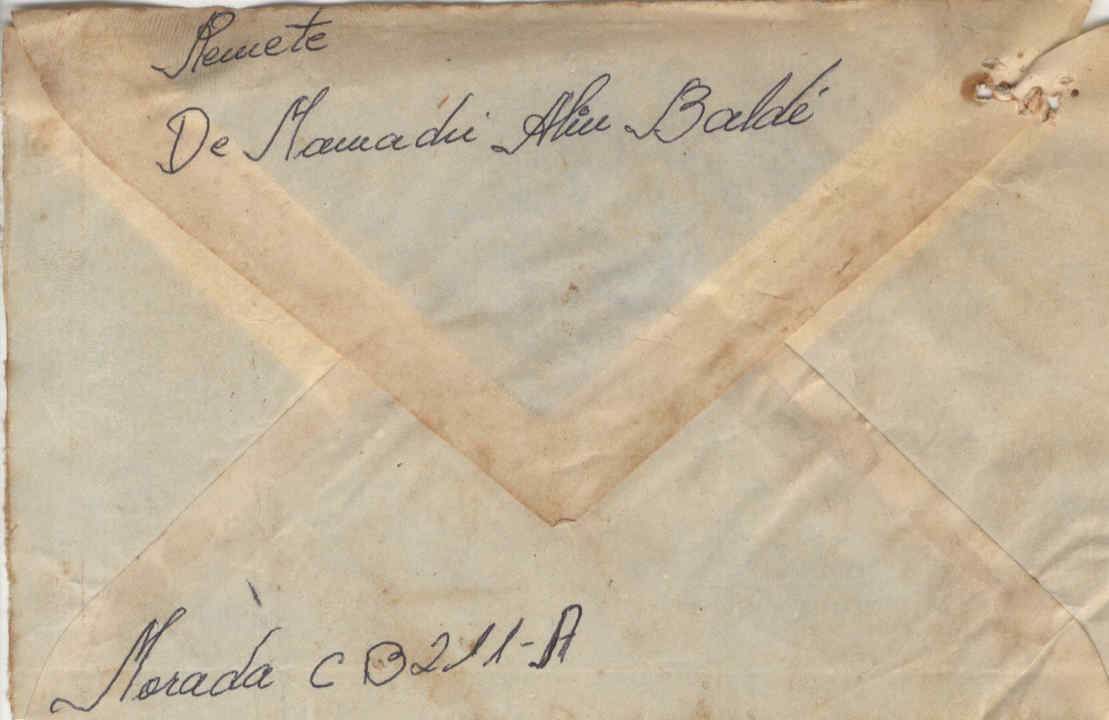 Remete
De Mamadu Aliu Baldé
Morada C B211-A